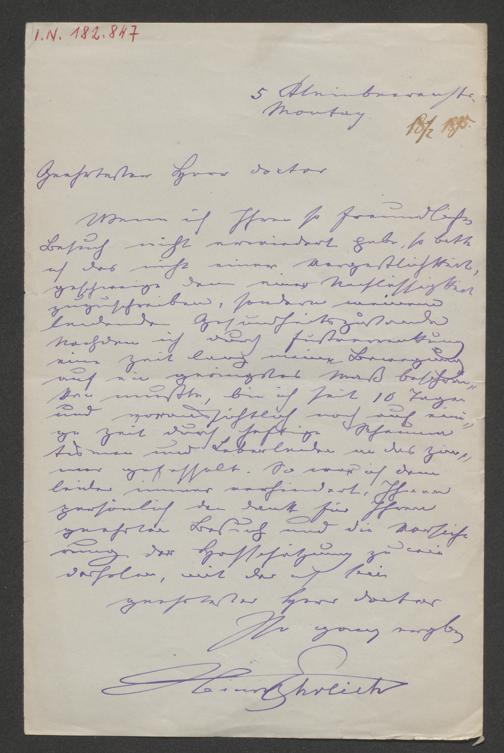 I.N. 182.847
5 Kleinbeerenstr.
Montag
18/2 1895.
Geehrtester Herr Doctor
Wenn ich Ihren so freundlichen
Besuch nicht erwiedert habe, so bitte
ich das nicht einer Vergeßlichkeit,
geschweige denn einer Nachlässigkeit
zuzuschreiben, sondern meinem
leidenden Gesundheitszustande
Nachdem ich durch
eine Zeit lang meine Bewegung
auf ein geringstes Maß beschrän-
ken mußte, bin ich seit 10 Tagen
und voraussichtlich noch auf eini-
ge Zeit durch heftige Rheuma
tismen und Leberleiden an das Zim-
mer gefesselt. So war ich denn
leider immer verhindert, Ihnen
persönlich den Dank für Ihren
geehrten Besuch und die Versiche
rung der Hochschätzung zu wie
derholen, mit der ich bin
geehrtester Herr Doctor
Ihr ganz ergebn
Heinr Ehrlich